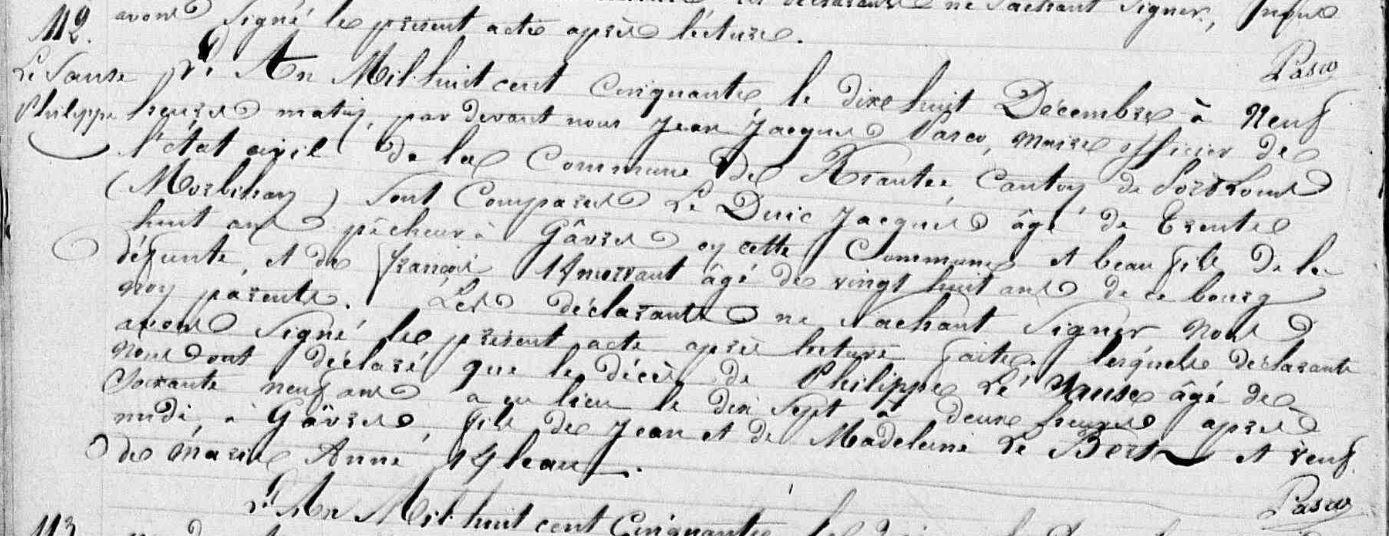 avons signé le présent acte après lecture. déclarants ne sachant signer, nous
112.
Pasco
Le Sause
Philippe
L'An Mil huit cent cinquante, le dixe huit Décembre à Neuf
heures matin, par devant nous Jean Jacques Pasco, maire officier de
l'état civil de la Commune de Riantec Canton de Port Louis
(Morbihan) sont Comparus Le Duic Jacques âgé de trente
huit ans pêcheur à Gâvres en cette Commune et beau fils de la
défunte, et de françois age de vingt huit ans de ce bourg
non parents. Les déclarants ne sachant signer nous
avons signé le présent acte après lecture faite. lesquels déclarants
nous ont déclaré que le décès de Philippe Le Sause âgé de
soixante neuf ans a eu lieu le dix sept à deux heures après
midi, à Gâvres, fils de Jean et de Madeleine Le Bert et veuf
de Marie Anne
Pasco
113
L'An Mil huit cent Cinquante